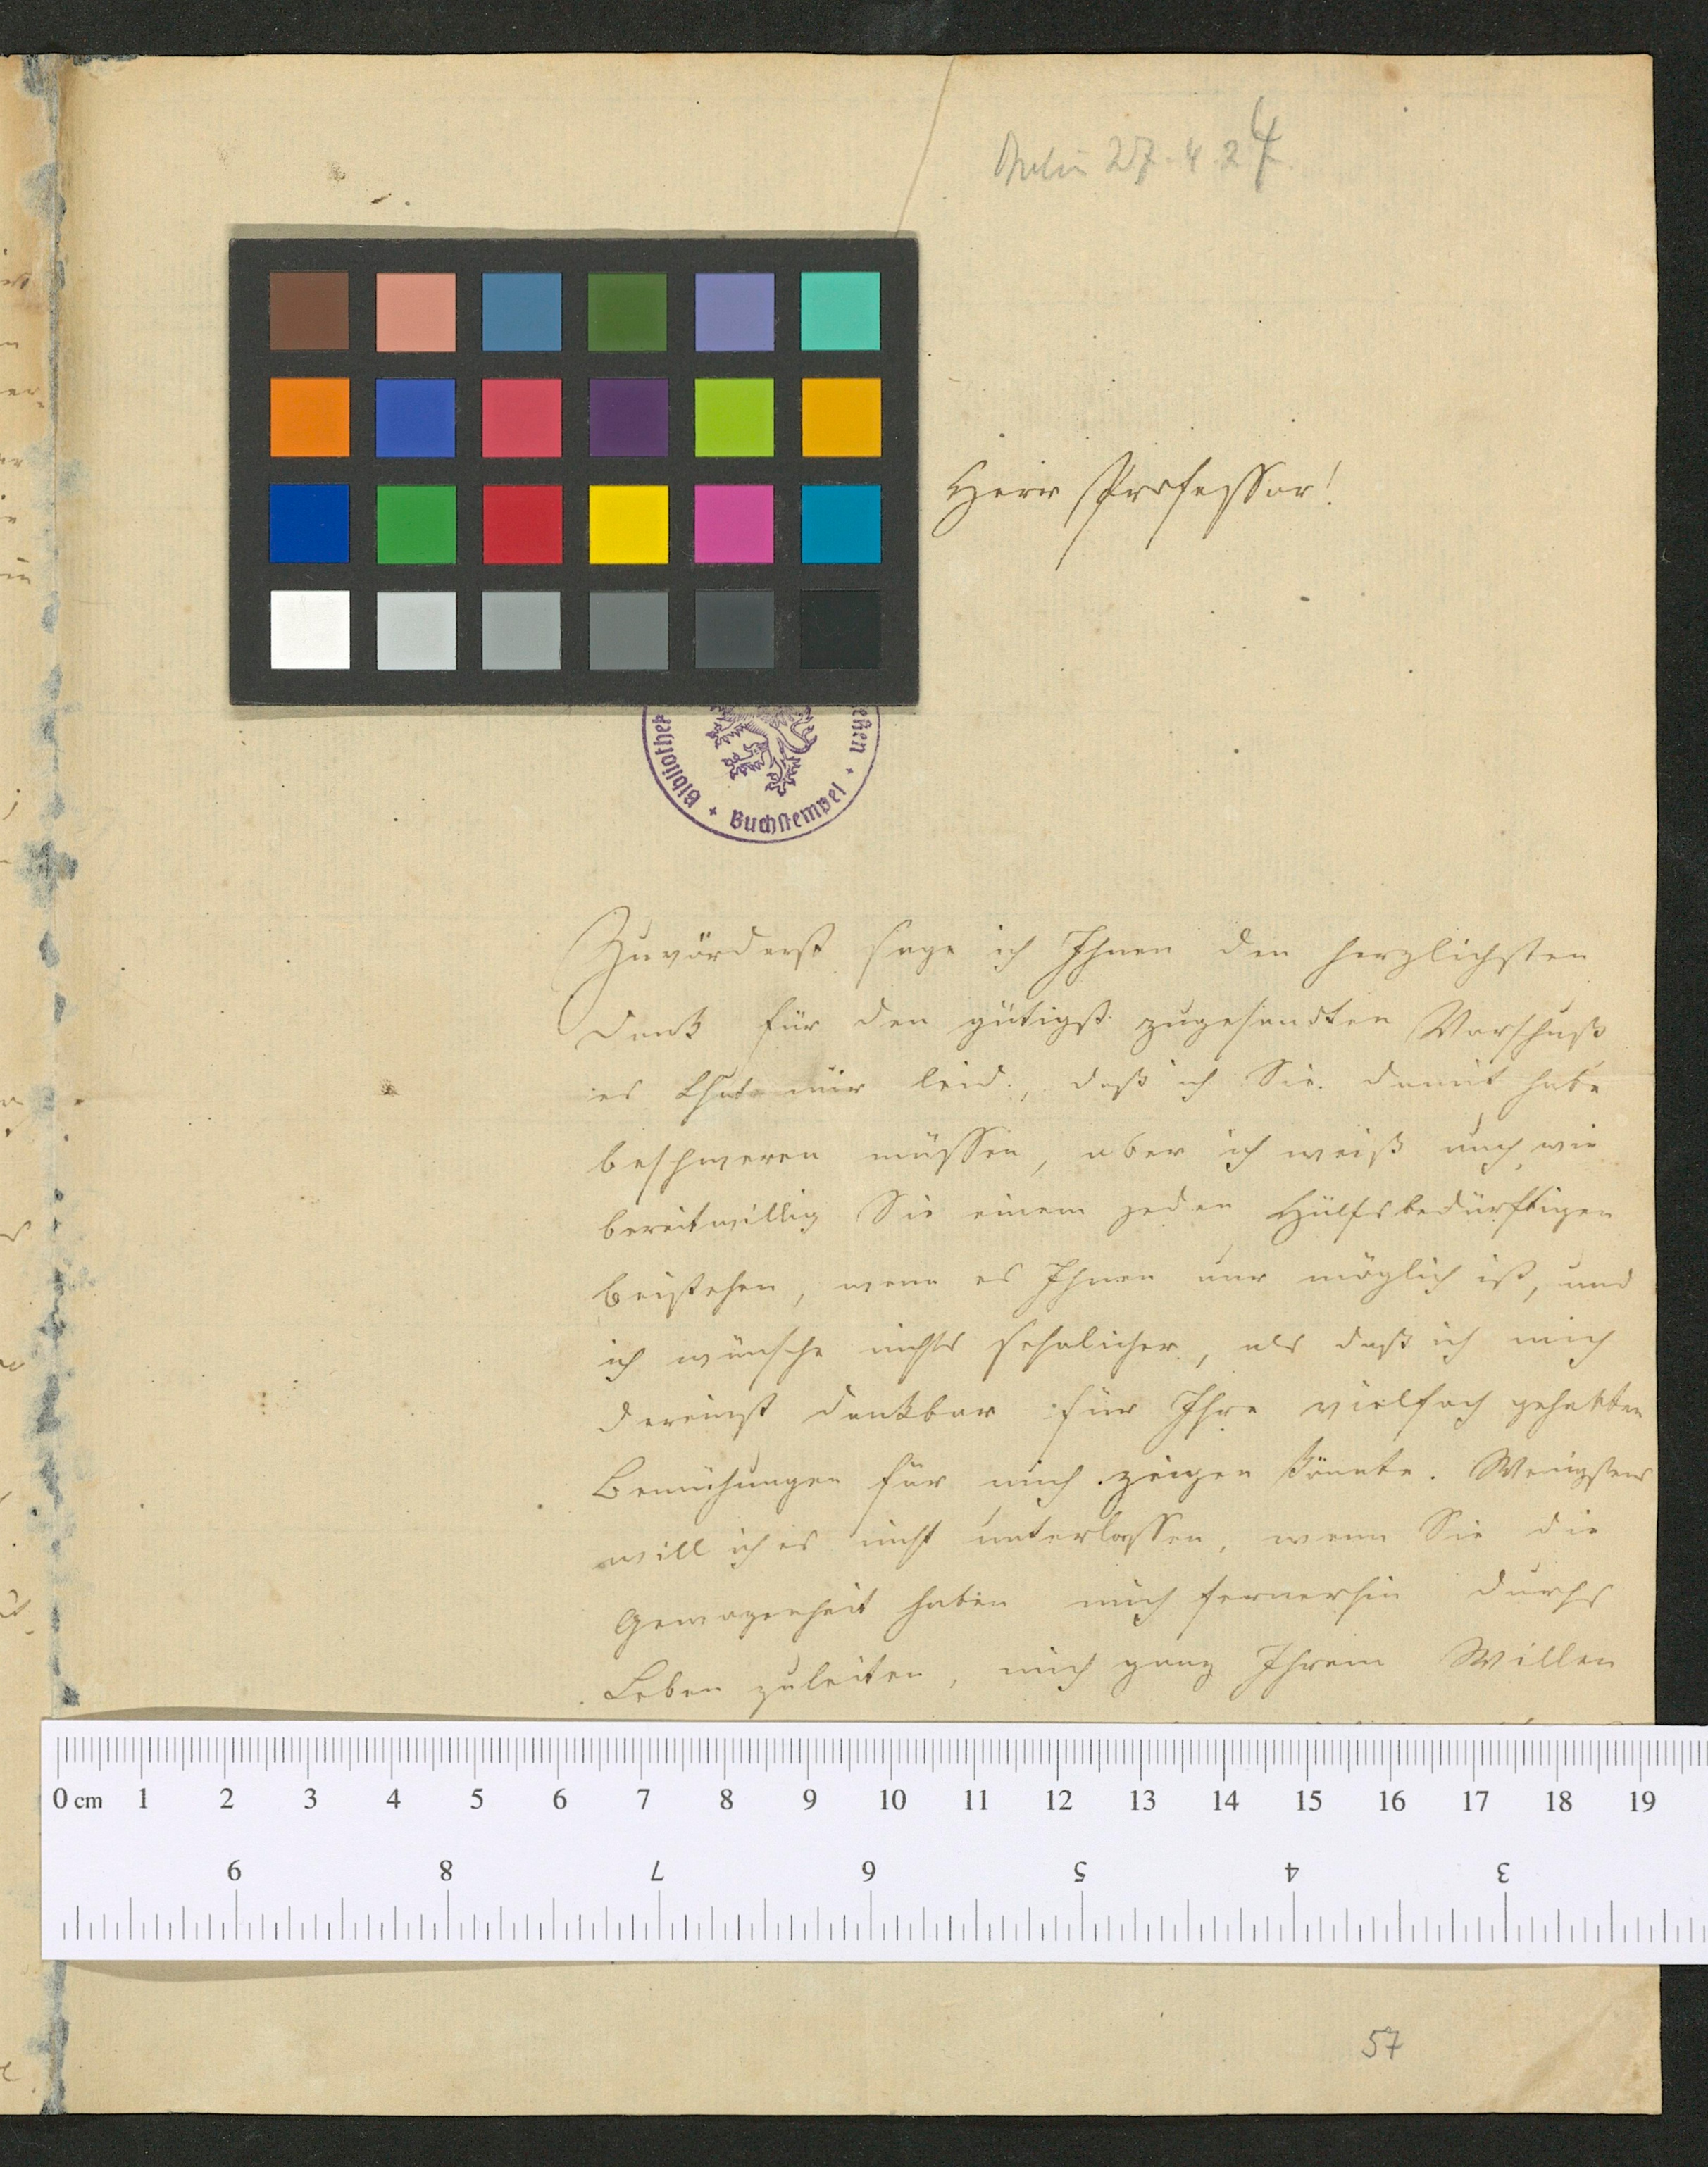 27. 4. 24
4
Herr Professor!
Bibliothek + Buchstempel +
Zuvörderst sage ich Ihnen den herzlichsten
Dank für den gütigst zugesandten Vorschuß
es thut mir leid, daß ich Sie damit habe
beschweren müssen, aber ich weiß auch wie
bereitwillig Sie einem jeden Hülfsbedürftigen
beistehen, wenn es Ihnen nur möglich ist, und
ich wünsche nichts sehnlicher, als daß ich mich
dereinst dankbar für Ihre vielfach gehabten
Bemühungen für mich zeigen könnte. Wenigstens
will ich es nicht unterlassen, wenn Sie die
Gewogenheit haben mich fernerhin durchs
Leben zuleiten, mich ganz Ihrem Willen
0 cm 1 2 3 4 5 6 7 8 9 10 11 12 13 14 15 16 17 18 19
9 8 7 6 5 4 3
57